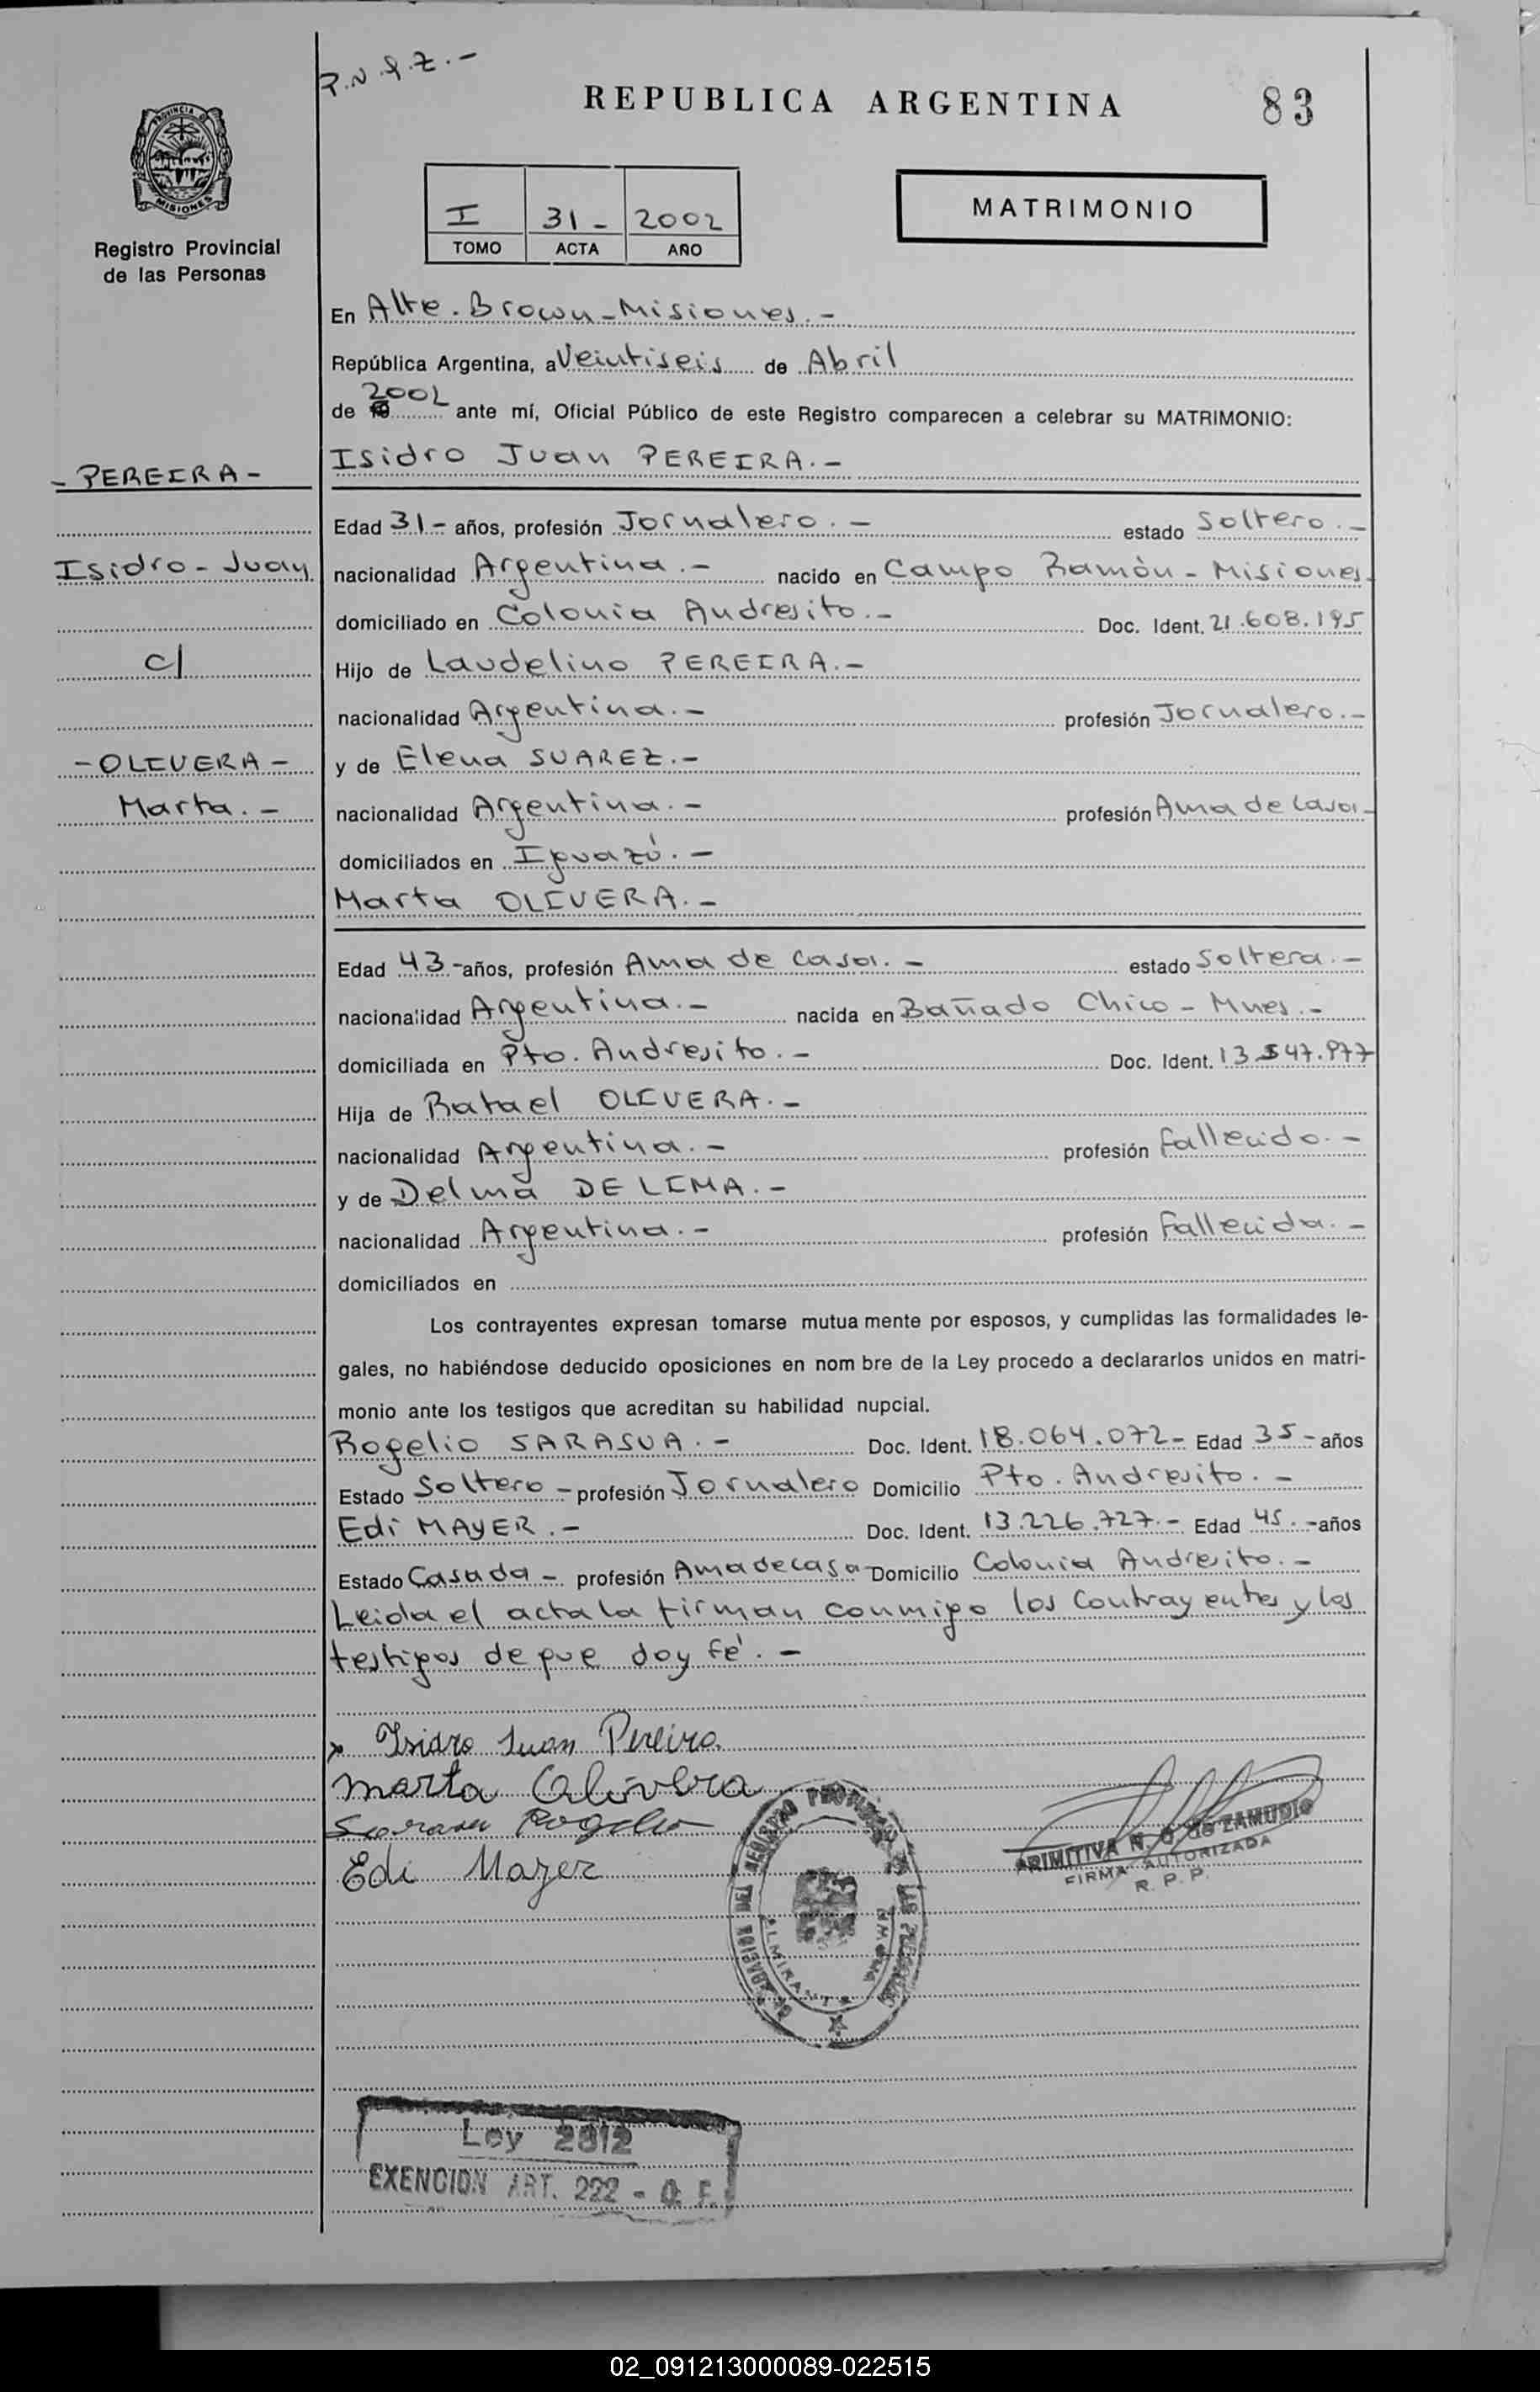 P.N.G.Z.-
REPUBLICA ARGENTINA
83
PROVINCIA DE
MISIONES
Registro Provincial
de las Personas
I 31- 2002
TOMO ACTA AÑO
MATRIMONIO
En Alte. Brown-Misiones.-
República Argentina, a Veintiseis de Abril
de 2002 ante mí, Oficial Público de este Registro comparecen a celebrar su MATRIMONIO:
- PEREIRA -
Isidro Juan PEREIRA.-
Edad 31- años, profesión Jornalero.- estado Soltero.-
Isidro - Juan
nacionalidad Argentina.- nacido en Campo Ramòn - Misiones.
domiciliado en Colonia Andresito.- Doc. Ident. 21.608.195
c/
Hijo de Laudelino PEREIRA.-
nacionalidad Argentina.- profesión Jornalero.-
- OLIVERA -
y de Elena SUAREZ.-
Marta.-
nacionalidad Argentina.- profesión Ama de casa.-
domiciliados en Iguazú.-
Marta OLIVERA.-
Edad 43-años, profesión Ama de casa.- estado Soltera.-
nacionalidad Argentina.- nacida en Bañado Chico - Mnes.-
domiciliada en Pto. Andresito.- Doc. Ident. 13.547.977
Hija de Rafael OLIVERA.-
nacionalidad Argentina.- profesión fallecido.-
y de Delma DE LIMA.-
nacionalidad Argentina.- profesión Fallecida.-
domiciliados en
Los contrayentes expresan tomarse mutua mente por esposos, y cumplidas las formalidades le-
gales, no habiéndose deducido oposiciones en nom bre de la Ley procedo a declararlos unidos en matri-
monio ante los testigos que acreditan su habilidad nupcial.
Rogelio SARASUA.- Doc. Ident. 18.064.072- Edad 35- años
Estado Soltero - profesión Jornalero Domicilio Pto. Andresito.-
Edi MAYER.- Doc. Ident. 13.226.727.- Edad 45.-años
Estado Casada - profesión Ama de casa- Domicilio Colonia Andresito.-
Leida el acta la firman conmigo los Contrayentes y los
testigos de que doy fé.-
x Isidro Juan Pereira
marta Olivera
Sarasua Rogelio
Edi Mayer
DELEGACION DEL REGISTRO PROVINCIAL DE LAS PERSONAS
ALMIRANTE BROWN
PRIMITIVA N. G. de ZAMUDIO
FIRMA AUTORIZADA
R. P. P.
Ley 2812
EXENCION ART. 222 - C. F.
02_091213000089-022515